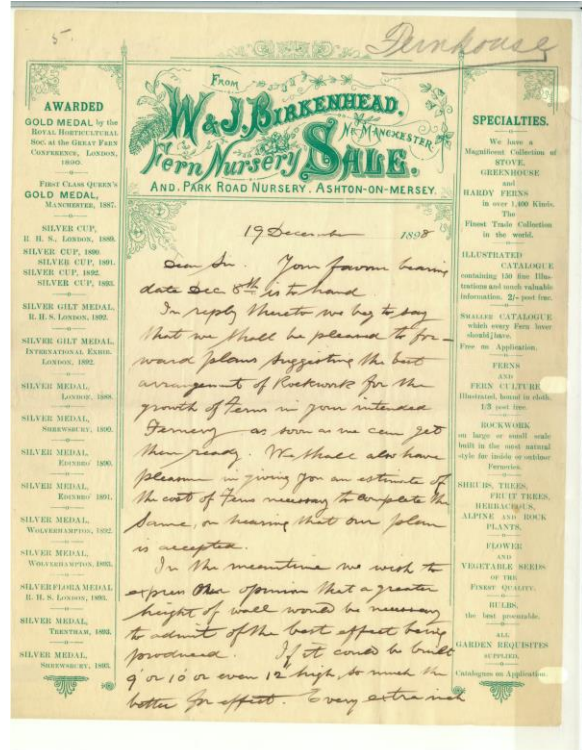 5.
Fernhouse
AWARDED
GOLD MEDAL by the
ROYAL HORTICULTURAL
SOC. at the GREAT FERN
CONFERENCE, LONDON,
1890.
FIRST CLASS QUEEN'S
GOLD MEDAL,
MANCHESTER, 1887.
SILVER CUP,
R. H. S., LONDON, 1889.
SILVER CUP, 1890.
SILVER CUP, 1891.
SILVER CUP, 1892.
SILVER CUP, 1893.
SILVER GILT MEDAL,
R. H. S. LONDON, 1892.
SILVER GILT MEDAL,
INTERNATIONAL EXHIB.
LONDON, 1892.
SILVER MEDAL,
LONDON, 1888.
SILVER MEDAL,
SHREWSBURY, 1890.
SILVER MEDAL,
EDINBRO' 1890.
SILVER MEDAL,
EDINBRO' 1891.
SILVER MEDAL,
WOLVERHAMPTON, 1892.
SILVER MEDAL,
WOLVERHAMPTON, 1893.
SILVER FLORA MEDAL
R. H. S. LONDON, 1893.
SILVER MEDAL,
TRENTHAM, 1893.
SILVER MEDAL,
SHREWSBURY, 1893.
FROM
W & J. BIRKENHEAD,
Fern Nursery SALE, NR. MANCHESTER,
AND, PARK ROAD NURSERY, ASHTON-ON-MERSEY.
19 December 1898
Dear Sir Your favour bearing
date Dec 8th is to hand.
In reply thereto we beg to say
that we shall be pleased to for-
ward plans suggesting the best
arrangement of Rockwork for the
growth of Ferns in your intended
Fernery as soon as we can get
them ready. We shall also have
pleasure in giving you an estimate of
the cost of Ferns necessary to complete the
same, on hearing that our plan
is accepted.
In the meantime we wish to
express our opinion that a greater
height of wall would be necessary
to admit of the best effect being
produced. If it could be built
9' or 10' or even 12 high, so much the
better for effect. Every extra inch
SPECIALTIES.
We have a
Magnificent Collection of
STOVE,
GREENHOUSE
and
HARDY FERNS
in over 1,400 Kinds.
The
Finest Trade Collection
in the world.
ILLUSTRATED
CATALOGUE
containing 150 fine Illus-
trations and much valuable
information, 2/- post free.
SMALLER CATALOGUE
which every Fern lover
should have.
Free on Application.
FERNS
AND
FERN CULTURE
Illustrated, bound in cloth.
1/3 post free.
ROCKWORK
on large or small scale
built in the most natural
style for inside or outdoor
Ferneries.
SHRUBS, TREES,
FRUIT TREES,
HERBACEOUS,
ALPINE AND ROCK
PLANTS.
FLOWER
AND
VEGETABLE SEEDS
OF THE
FINEST QUALITY.
BULBS,
the best procurable.
ALL
GARDEN REQUISITES
SUPPLIED.
Catalogues on Application.